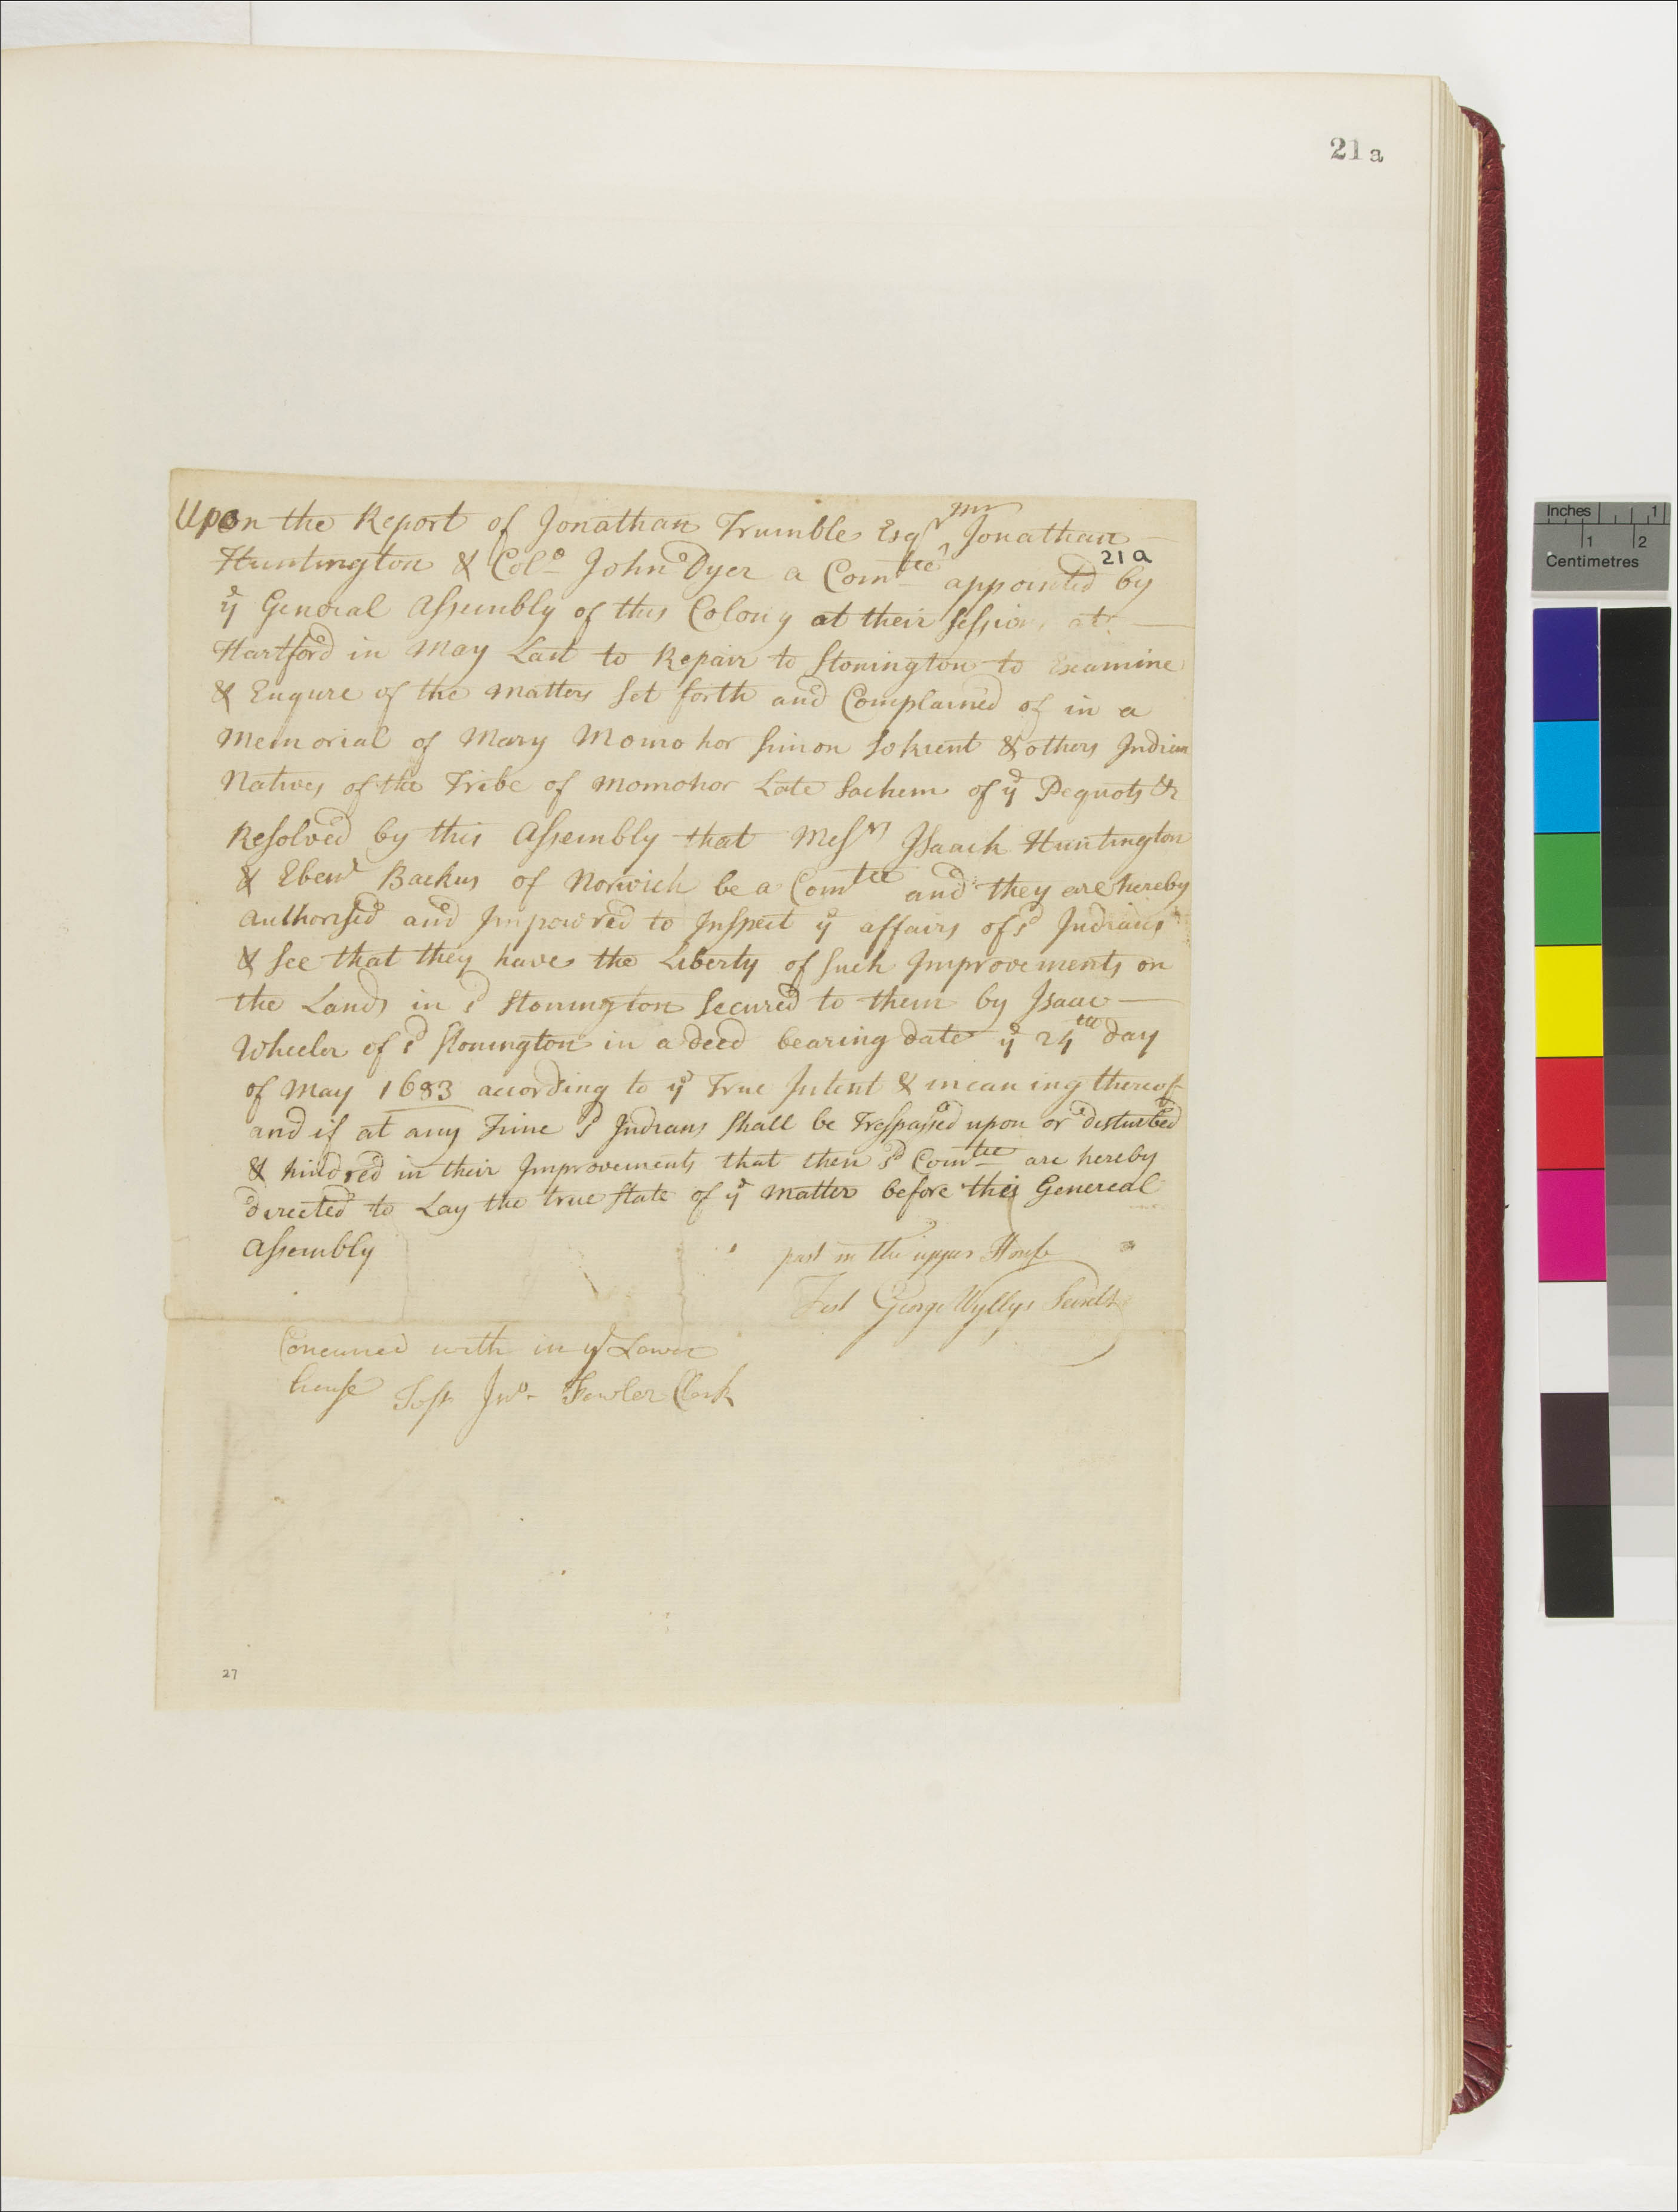 21a
Upon the Report of Jonathan Trumble Esqr Mr Jonathan
Huntington & Colo John Dyer a Comtee appointed by
21a
ye General Assembly of this Colony at their Session at
Hartford in May Last to Repair to Stonington to Examine
& Enqure of the matters Set forth and Complained of in a
Memorial of Mary Momohor Simon Sokient & others Indian
Natives of the Tribe of Momohor Late Sachem of ye Pequots &c
Resolved by this Assembly that Messrs Isaack Huntington
& Ebenr Backus of Norwich be a Comtee and they are hereby
authorised and Impowred to Inspect ye affairs of sd Indians
& See that they have the Liberty of Such Improvements on
the Lands in sd Stonington Secured to them by Isaac
Wheeler of sd Stonington in a deed bearing date ye 24th day
of May 1683 according to ye True Intent & meaning thereof
and if at any Time sd Indians Shall be Trespassed upon or disturbed
& hindred in their Improvements that then sd Comtee are hereby
directed to Lay the true State of ye matter before this Genereal
Assembly
past in the upper House
Test George Wyllys Secrety
Concurred with in ye Lower
house Test Jno Fowler Clerk
27
Inches 1
1 2
Centimetres